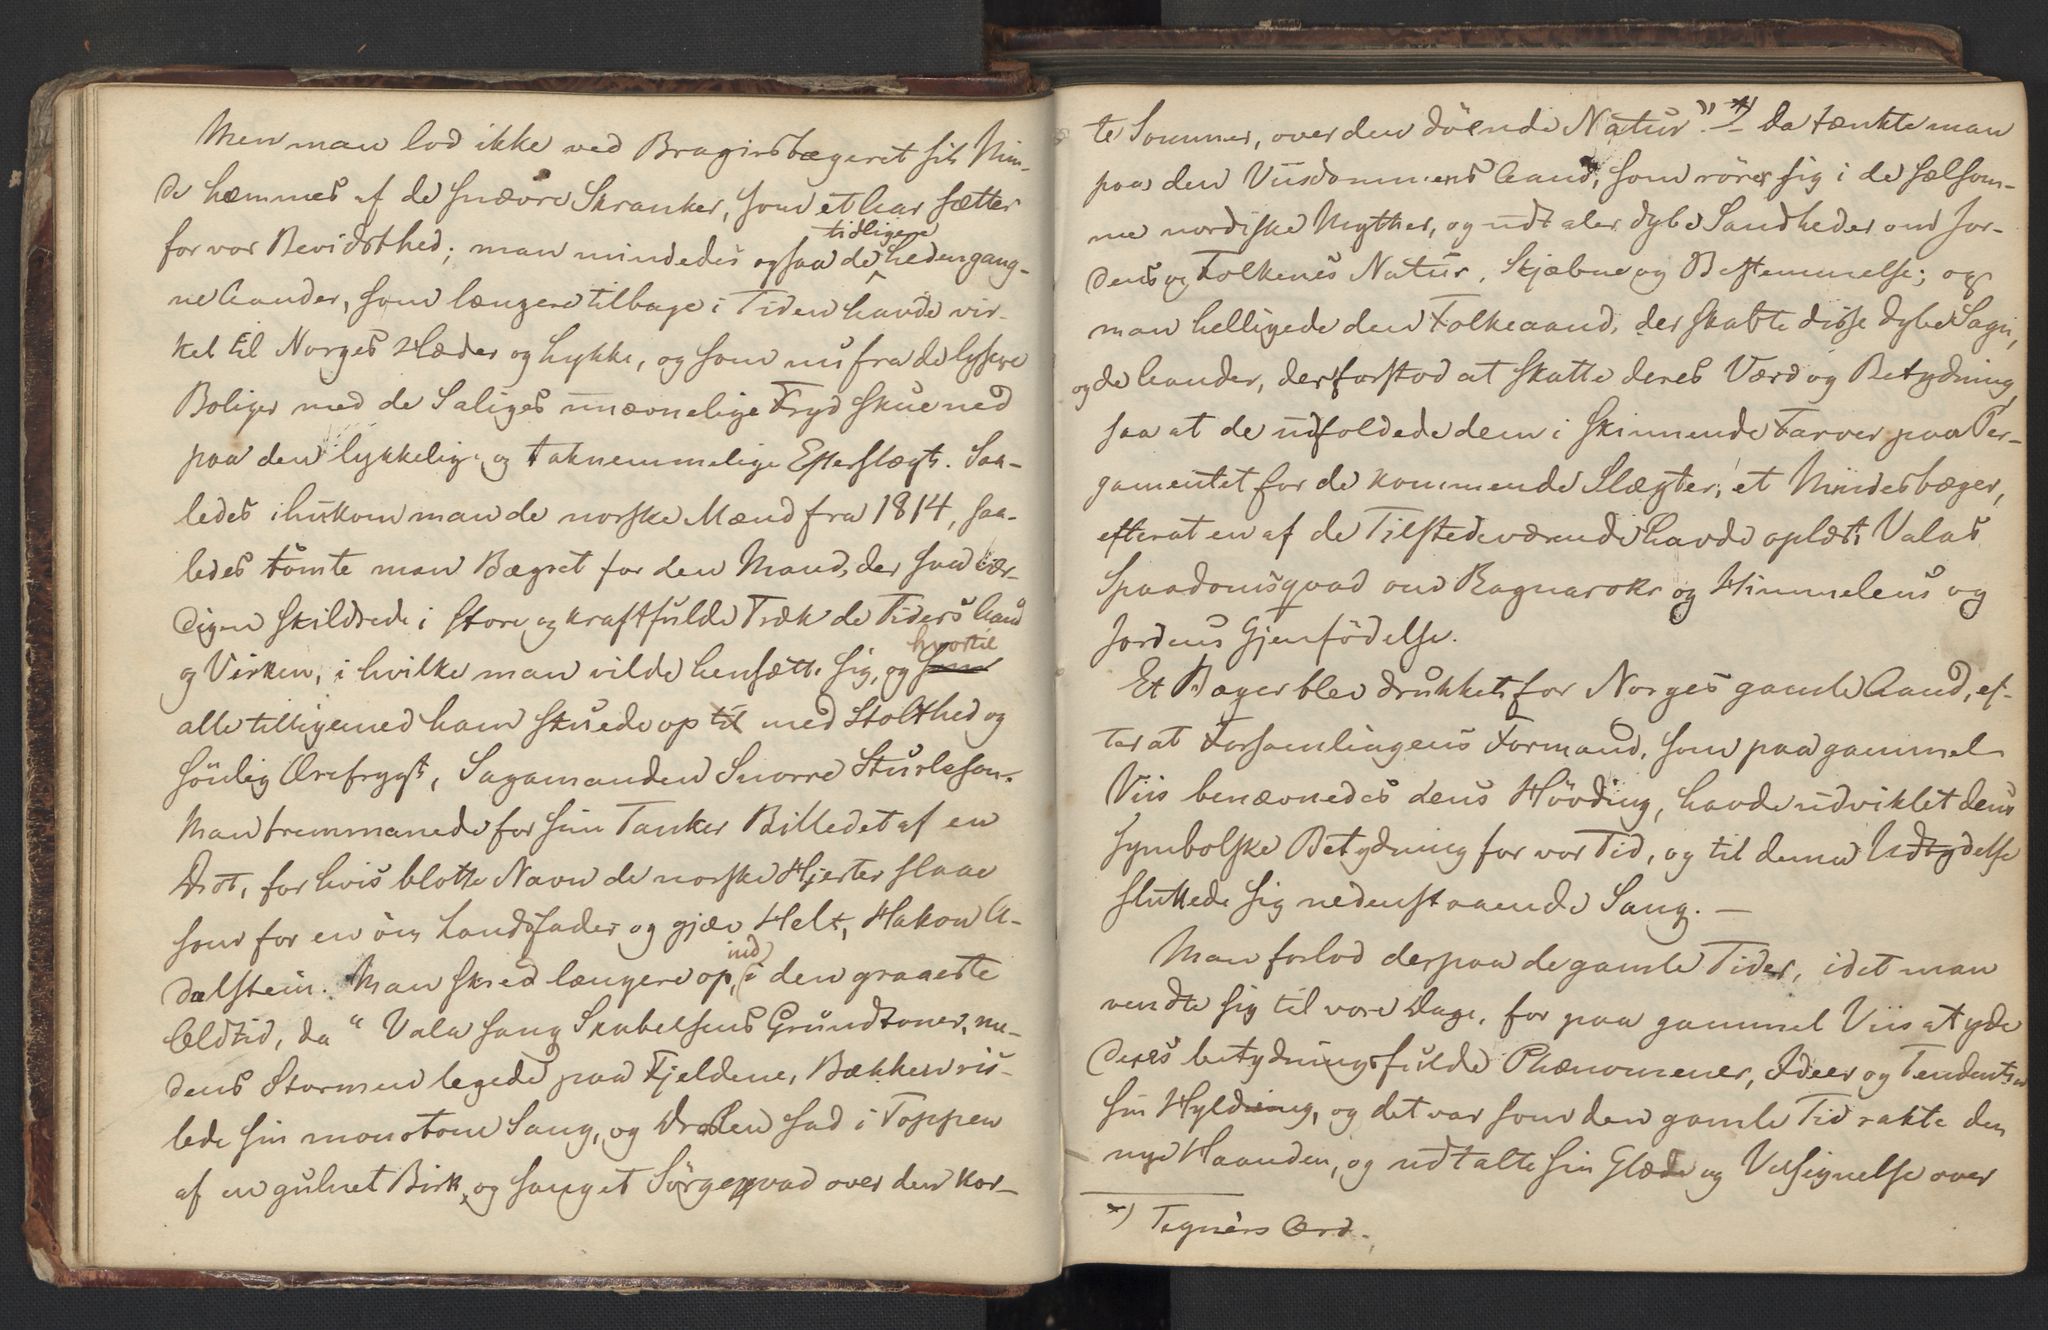 Men man lod ikke ved Bragirsbægeret sit Min-
de hæmmes af de snævre Skranker, som et Aar sætter
for vor Bevidsthed; man mindedes ogsaa de tidligere hedengang-
ne Aander, som længere tilbage i Tiden havde vir-
ket til Norges Hæder og Lykke, og som nu fra de lysere
Boliger med de Saliges unævnelige Fryd skue ned
paa den lykkelige og taknemmelige Efterslægt. Saa-
ledes ihukom man de norske Mænd fra 1814, saa-
ledes tömte man Bægret for den Mand, der saa vær-
digen skildrede i store og kraftfulde Træk de Tiders Aand
og Virken, i hvilke man vilde hensætte sig, og som hvortil
alle tilligemed ham skuede op til med Stolthed og
sönlig Ærefrygt, Sagamanden Snorre Sturleson.
Man fremmanede for sin Tanker Billedet af en
Drot, for hvis blotte Navn de norske Hjerter slaae
som for en öm Landsfader og gjæv Helt, Hakon A-
dalstein. Man skred længere op, ind i den graaeste
Oldtid, da "Vala sang Skabelsens Grundtoner, me-
dens Stormen legede paa Fjeldene, Bækken ris-
lede sin monotone Sang, og Droslen sad i Toppen
af en gulnet Birk, og sang et Sörgeqvad over den kor-
te Sommer, over den döende Natur". *) – Da tænkte man
paa den Viisdommens Aand, som rörer sig i de sælsom-
me nordiske Myther, og udtaler dybe Sandheder om Jor-
dens og Folkenes Natur, Skjæbne og Bestemmelse; og
man helligede den Folkeaand, der skabte disse dybe Sagn,
og de Aander, der forstod at skatte deres Værd og Betydning,
saa at de udfoldede dem i skinnende Farver paa Per-
gamentet for de kommende Slægter, et Mindesbæger,
efterat en af de Tilstedeværende havde oplæst Valas
Spaadomsqvad om Ragnarokr og Himmelens og
Jordens Gjenfödelse.
Et Bæger blev drukket for Norges gamle Aand, ef-
terat Forsamlingens Formand, som paa gammel
Viis benævnedes dens Hövding, havde udviklet dens
symbolske Betydning for vor Tid, og til denne Udtydelse
sluttede sig nedenstaaende Sang. —
Man forlod derpaa de gamle Tider, idet man
vendte sig til vore Dage, for paa gammel Viis at yde
deres betydningsfulde Phænomener, Ideer og Tendentser
sin Hyldning, og det var som den gamle Tid rakte den
nye Haanden, og udtalte sin Glæde og Velsignelse over
*) Tegnérs Ord.